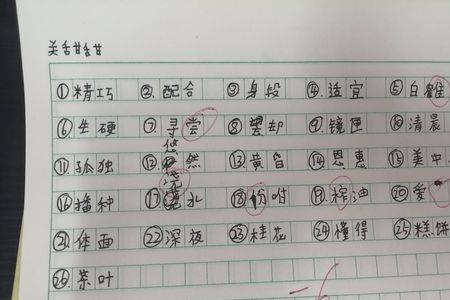 ①精巧 ②配合 ③身段 ④适宜 ⑤白
⑥生硬 ⑦寻尝 ⑧却 ⑨镜匣 ⑩清晨
⑪孤独 ⑫悠然 ⑬黄昏 ⑭恩惠 ⑮美中
⑯播种 ⑰浇水 ⑱咐 ⑲榨油 ⑳爱
㉑体面 ㉒深夜 ㉓桂花 ㉔懂得 ㉕糕饼
㉖茶叶